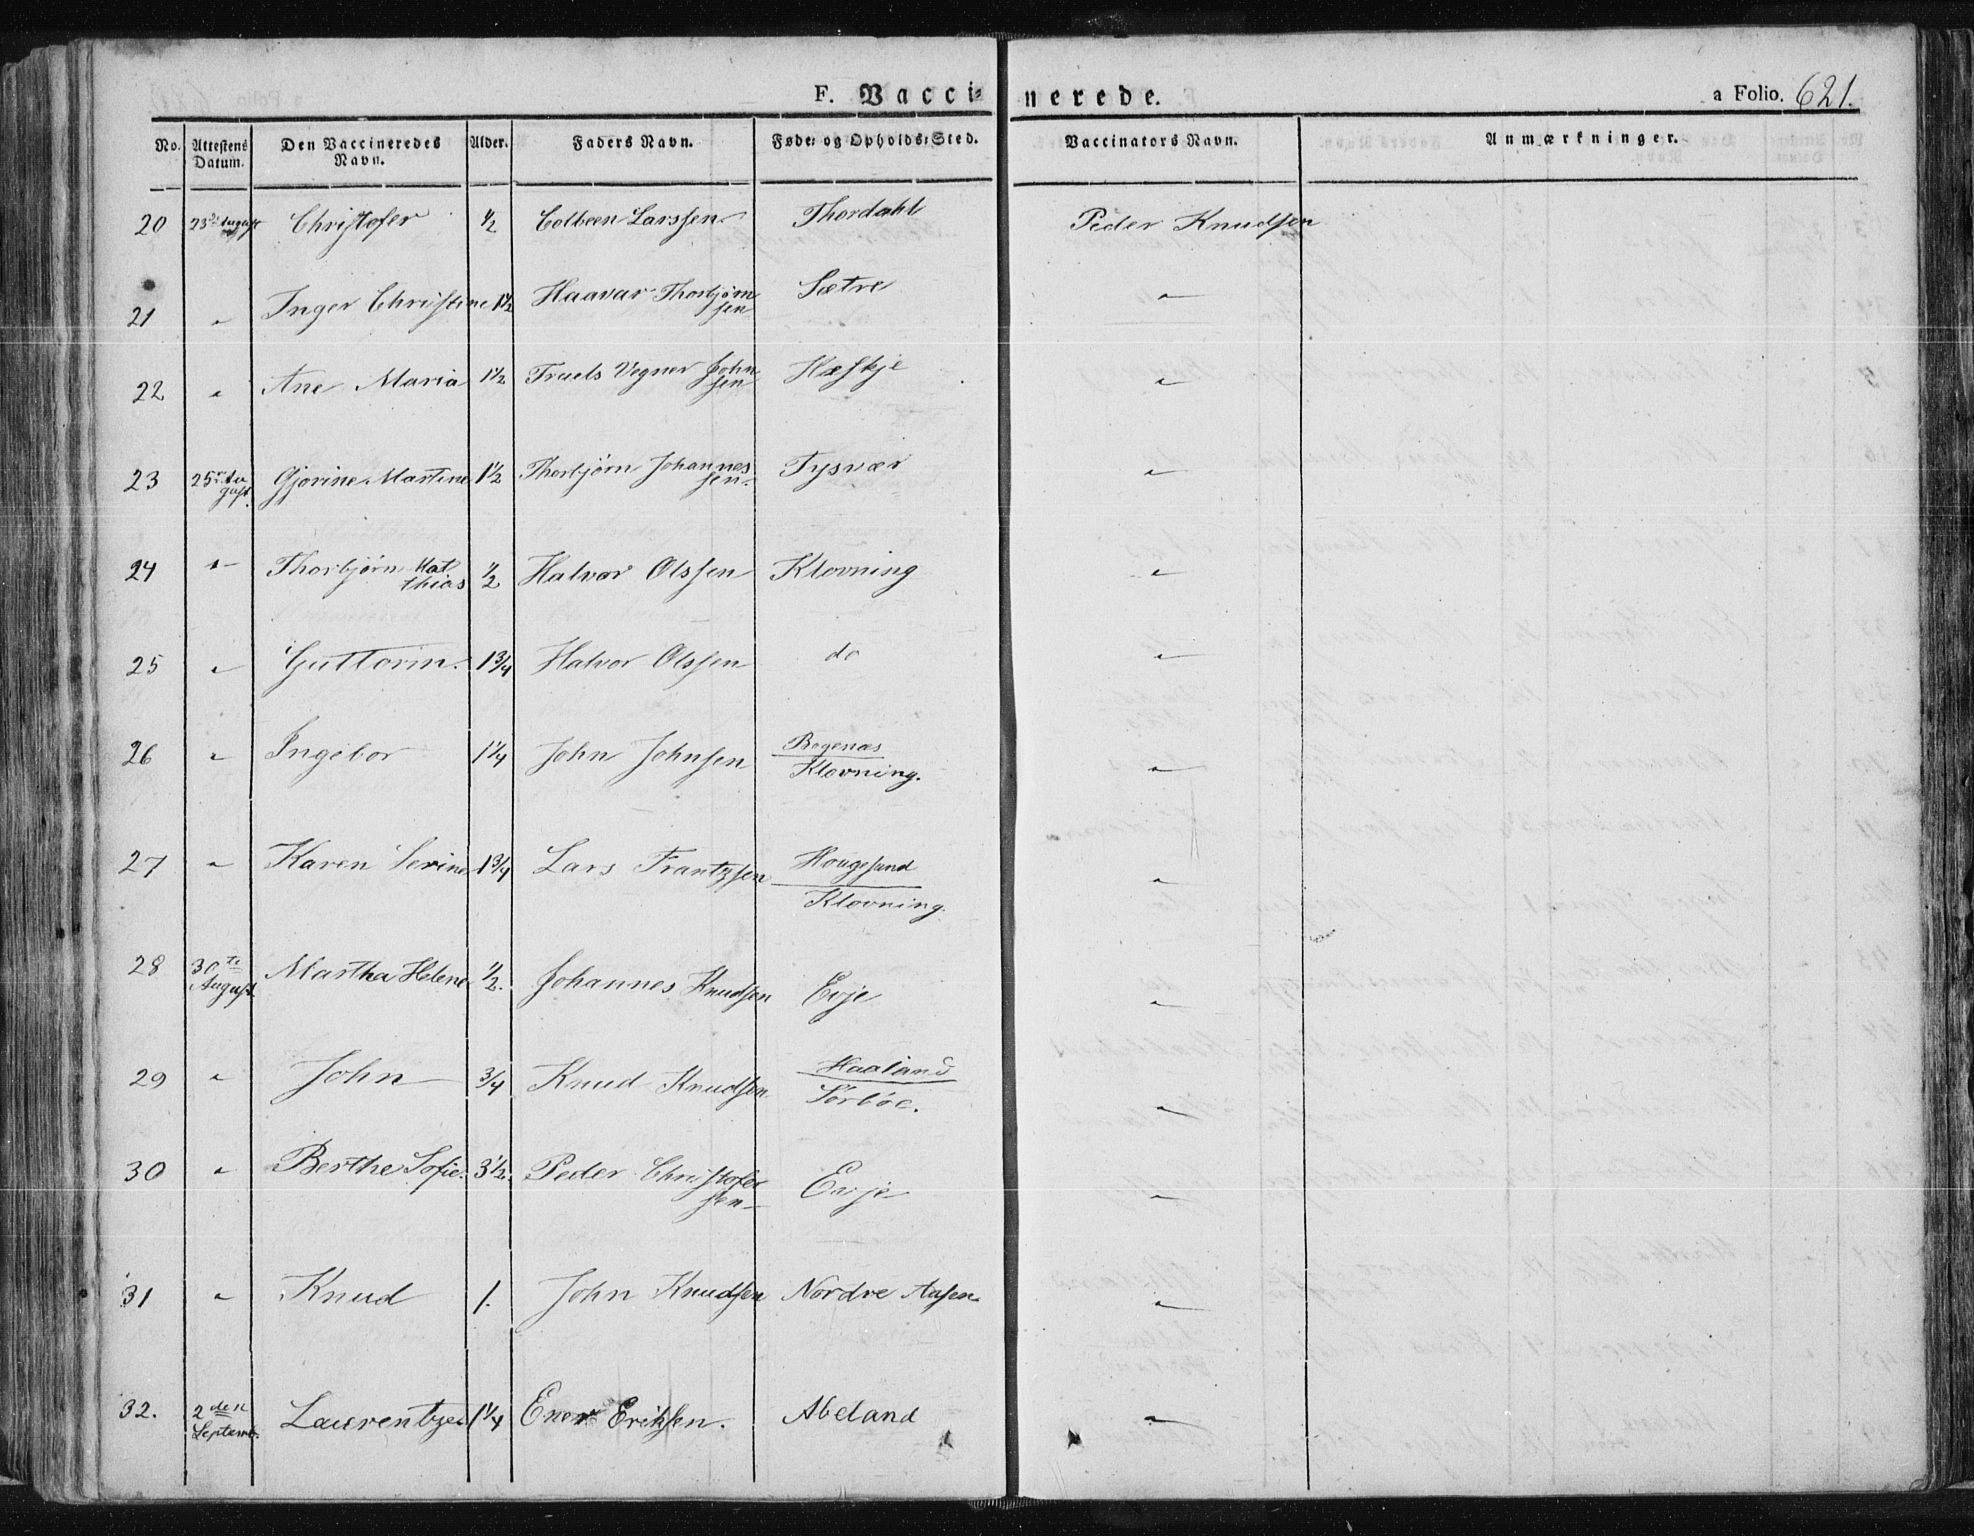 F. Vaccinerede. a Folio. 621.
No. Attestens Datum. Den Vaccineredes Navn. Alder. Faders Navn. Føde: og Opholds: Sted. Vaccinators Navn. Anmærkninger.
20 23de August Christofer ½ Colbeen Larssen Thordahl Peder Knudsen
21 " Inger Christine 1½ Haavar Thorbjørnsen Sætre "
22 " Ane Maria 1½ Truels Vegner Johnsen Hæskje "
23 25de August. Gjorine Martine 1½ Thorbjørn Johannessen Tysvær "
24 " Thorbjørn Matthias ½ Halvor Olssen Klovning "
25 " Guttorm. 1¾ Halvor Olssen do "
26 " Ingebor 1¼ John Johnsen Bogenæs Klovning. "
27 " Karen Serine 1¾ Lars Frantzsen Hougesund Klovning. "
28 30te August Martha Helene ½. Johannes Knudsen Evje "
29 " John ¾ Knud Knudsen Haaland Sørbøe. "
30 " Berthe Sofie. 3½. Peder Christofersen Evje "
31 " Knud 1. John Knudsen Nordre Aasen "
32. 2den Septemb. Laurentze 1¼ Ener Eriksen. Abeland "